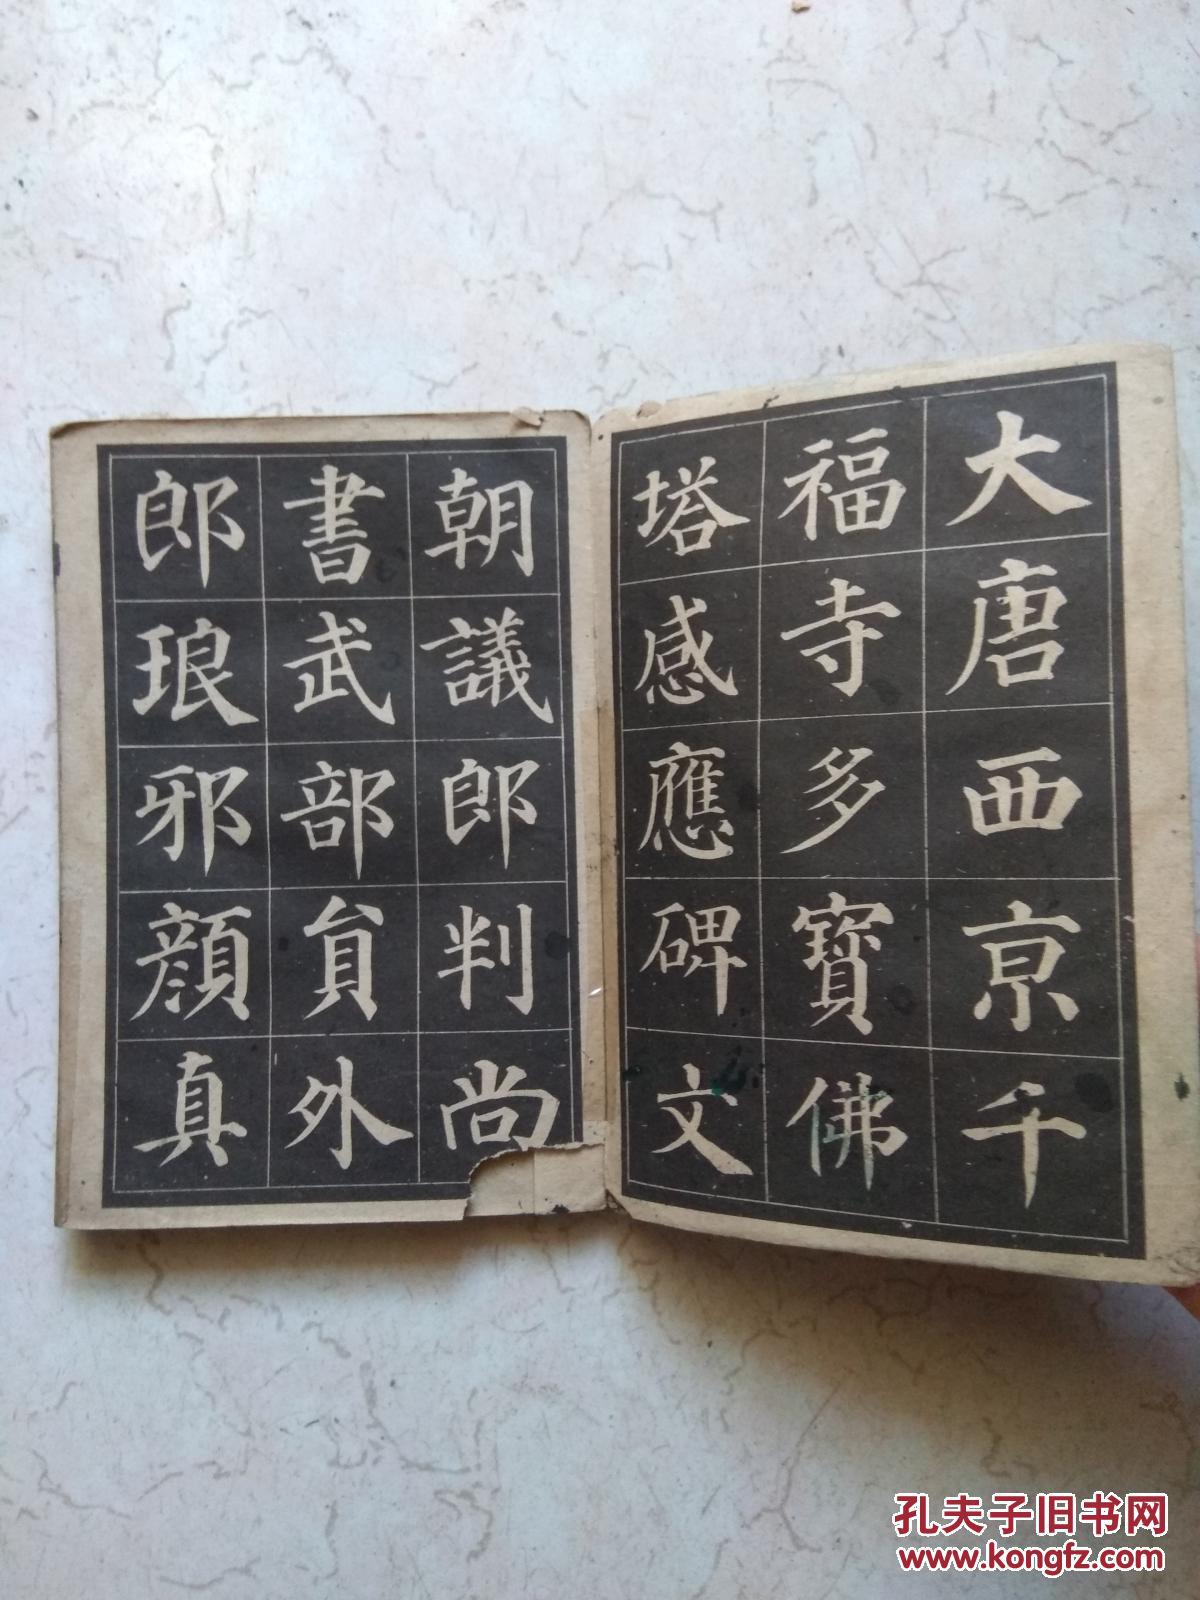 大唐西京千
福寺多寶佛
塔感應碑文
朝議郎判尚
書武部員外
郎琅邪顏真
孔夫子旧书网
www.kongfz.com